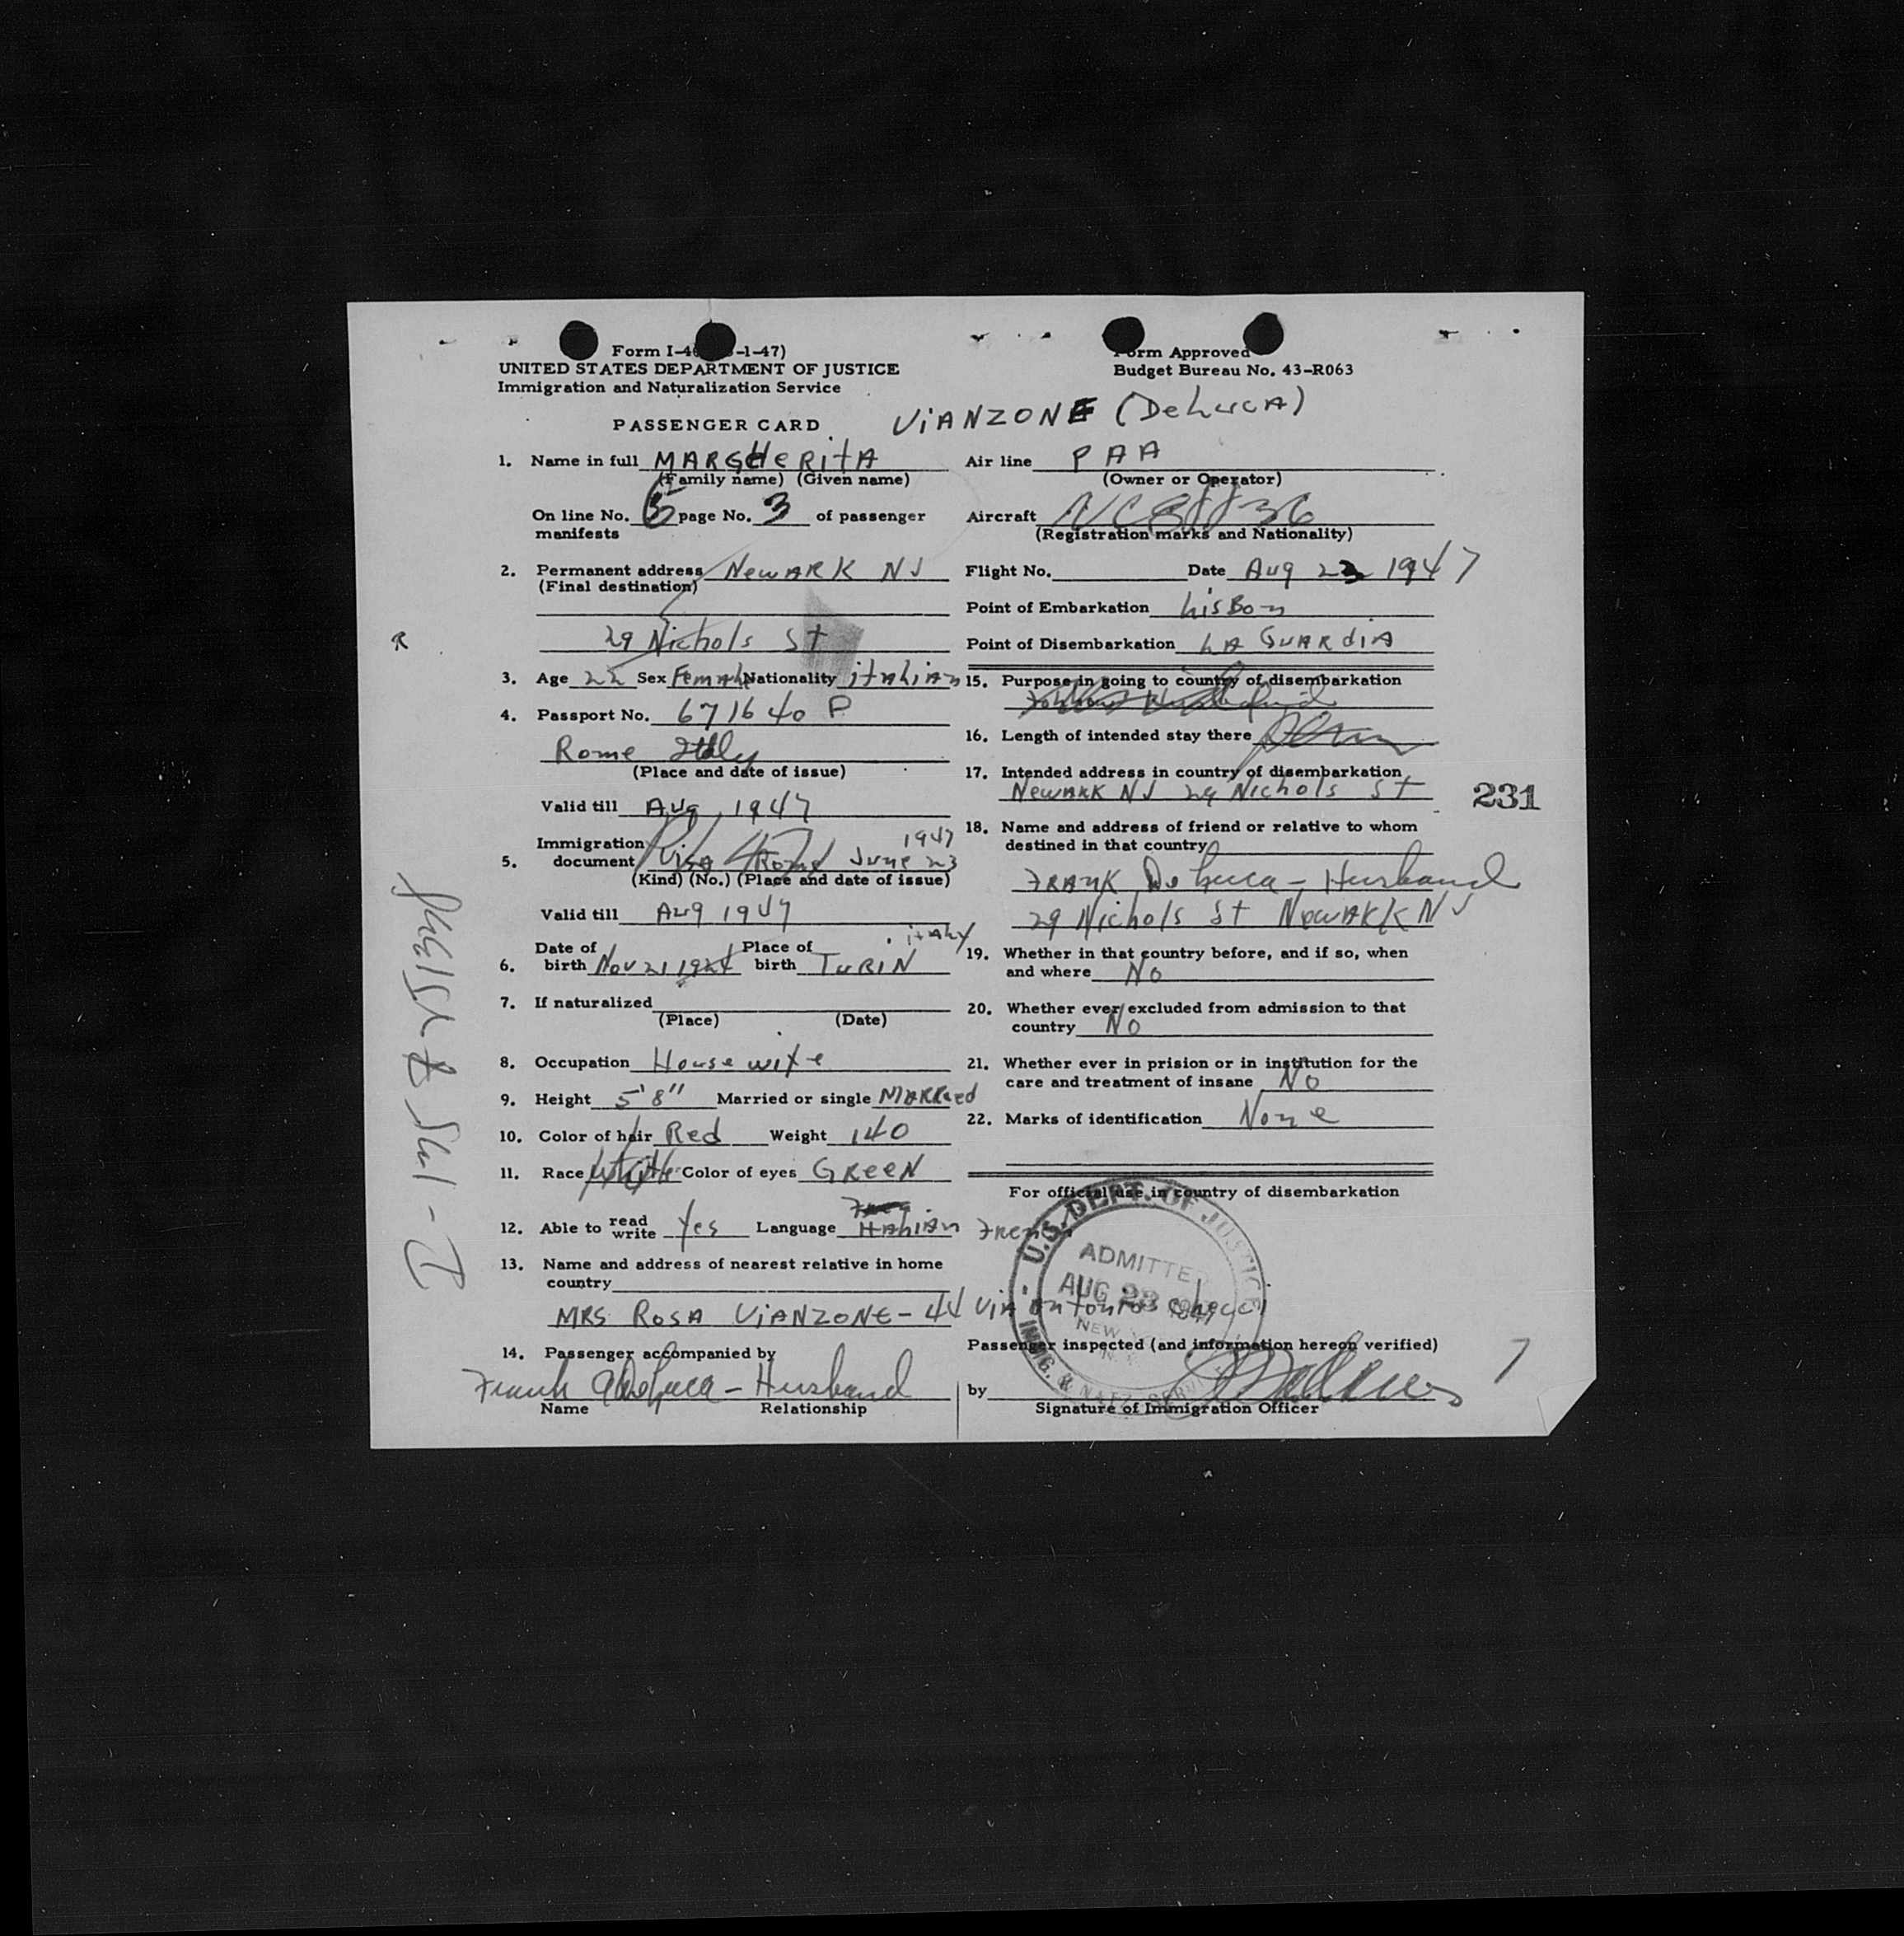 Form I-4 -1-47)
UNITED STATES DEPARTMENT OF JUSTICE
Immigration and Naturalization Service
Form Approved
Budget Bureau No. 43-R063
PASSENGER CARD
ViANZONE (DeLucA)
1. Name in full MARGHeRitA
(Family name) (Given name)
On line No. 5 page No. 3 of passenger
manifests
2. Permanent address NewARK NJ
(Final destination)
29 Nichols St
3. Age 22 Sex Female Nationality itALiAn
4. Passport No. 671640 P
Rome Italy
(Place and date of issue)
Valid till Aug 1947
Immigration 1947
5. document Visa Rome June 23
(Kind) (No.) (Place and date of issue)
Valid till Aug 1947
Date of Place of itALy
6. birth Nov 21 1924 birth TuRIN
7. If naturalized
(Place) (Date)
8. Occupation House wife
9. Height 5'8" Married or single MARRied
10. Color of hair Red Weight 140
11. Race White Color of eyes GReeN
12. Able to read write Yes Language ItALiAn
13. Name and address of nearest relative in home
country
MRS ROSA ViANZONE - 44 ViA Antonio
14. Passenger accompanied by
Frank DeLuca - Husband
Name Relationship
Air line PAA
(Owner or Operator)
Aircraft NC88836
(Registration marks and Nationality)
Flight No. Date Aug 23 1947
Point of Embarkation LisBon
Point of Disembarkation LA GuARdiA
15. Purpose in going to country of disembarkation
16. Length of intended stay there Perm
17. Intended address in country of disembarkation
NewARK NJ 29 Nichols St
231
18. Name and address of friend or relative to whom
destined in that country
FRANK DeLuca - Husband
29 Nichols St NewARK NJ
19. Whether in that country before, and if so, when
and where No
20. Whether ever excluded from admission to that
country No
21. Whether ever in prision or in institution for the
care and treatment of insane No
22. Marks of identification None
For official use in country of disembarkation
U.S. DEPT. OF JUSTICE
ADMITTED
AUG 23 1947
NEW
IMMIG. & NATZ. SERVICE
Passenger inspected (and information hereon verified)
by
Signature of Immigration Officer